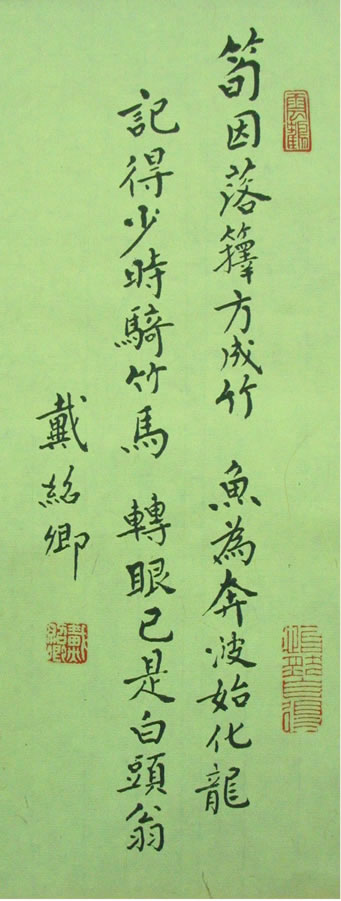 筍因落籜方成竹 魚為奔波始化龍
記得少時騎竹馬 轉眼已是白頭翁
戴紹卿
戴紹卿